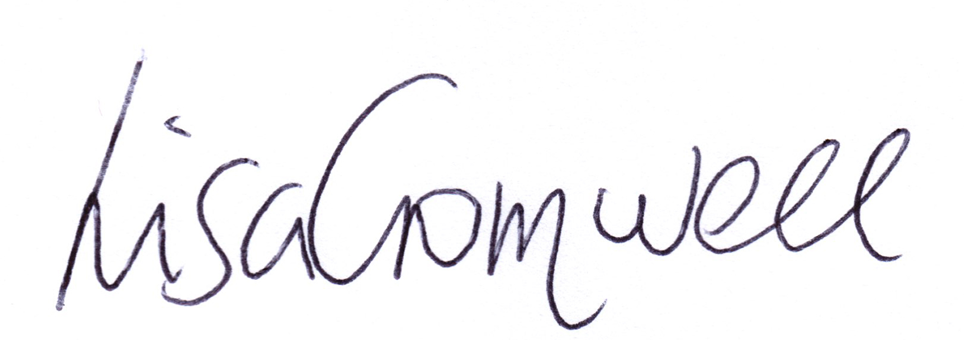 Lisa Cromwell